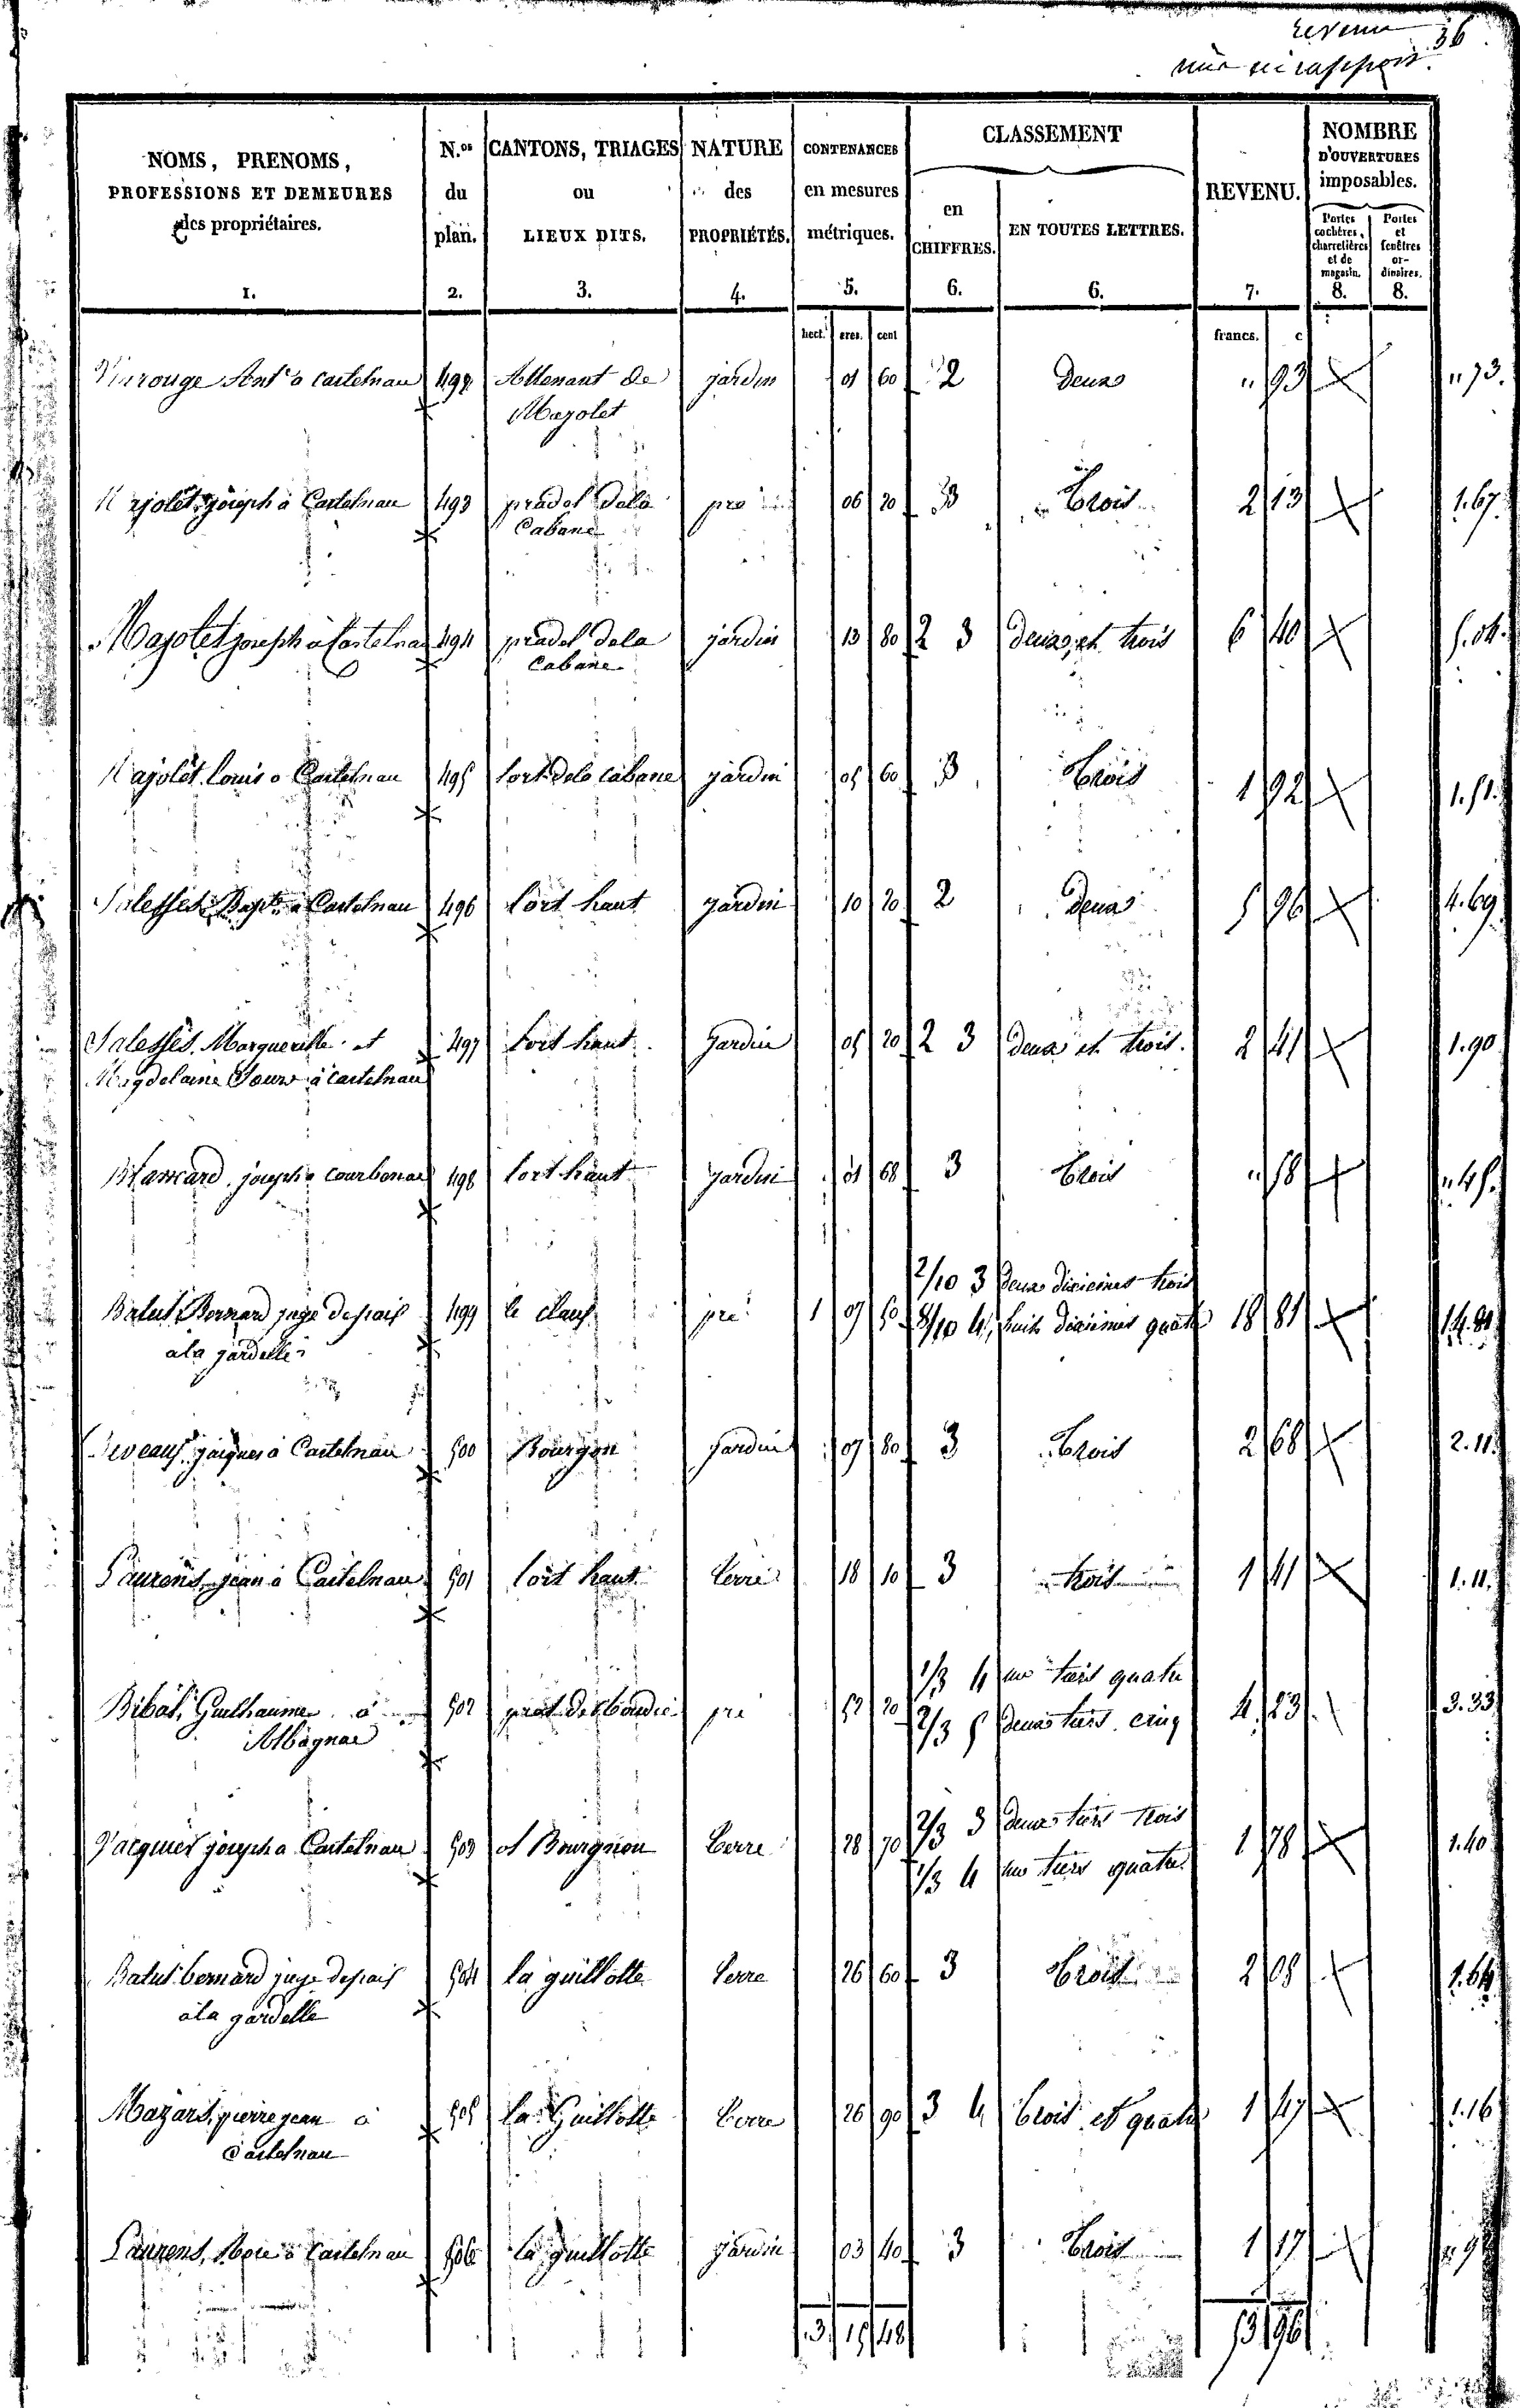 revenu 36
NOMS, PRENOMS, PROFESSIONS ET DEMEURES des propriétaires. 1.
N.os du plan. 2.
CANTONS, TRIAGES ou LIEUX DITS. 3.
NATURE des PROPRIÉTÉS. 4.
CONTENANCES en mesures métriques. 5.
CLASSEMENT
en CHIFFRES. 6.
EN TOUTES LETTRES. 6.
REVENU. 7.
NOMBRE D'OUVERTURES imposables.
Portes cochères, charretières et de magasin. 8.
Portes et fenêtres ordinaires. 8.
hect. ares. cent francs. c
à Castelnau 492 Attenant de jardin 01 60 2 Deux " 93 " 73.
Mazolet
joseph à Castelnau 493 pradel dela pré 06 20 3 Trois 2 13 1.67
Cabane
Mazolet joseph à Castelnau 494 pradel dela jardin 13 80 2 3 deux et trois 6 40 5.04.
Cabane
Louis a Castelnau 495 lort dela cabane jardin 05 60 3 Trois 1 92 1.51.
à Castelnau 496 lort haut jardin 10 20 2 Deux 5 96 4.69
Salesses, Margueritte et 497 lort haut jardin 05 20 2 3 deux et trois. 2 41 1.90
Magdelaine Sœurs à Castelnau
joseph a 498 lort haut jardin 01 68 3 Trois " 58 " 45.
2/10 3 Deux dixiemes trois
Batut Bernard juge depaix 499 le Claux pré 1 07 50 8/10 4 huit dixiemes quatre 18 81 14.81
ala gardelle
jaques à Castelnau 500 jardin 07 80 3 Trois 2 68 2.11
Laurens, jean à Castelnau 501 lort haut terre 18 10 3 trois 1 41 1.11.
1/3 4 un tiers quatre
Guilhaume à 502 pré 52 20 2/3 5 deux tiers cinq 4 23 3.33
2/3 3 deux tiers trois
joseph a Castelnau 503 terre 28 70 1/3 4 un tiers quatre 1 78 1.40
Batut bernard juge depaix 504 la guillotte terre 26 60 3 Trois 2 08 1.64
ala gardelle
Mazars, pierre jean à 505 la Guillotte terre 26 90 3 4 trois et quatre 1 47 1.16
Castelnau
Laurens, à Castelnau 506 la guillotte jardin 03 40 3 Trois 1 17
3 15 48 53 96